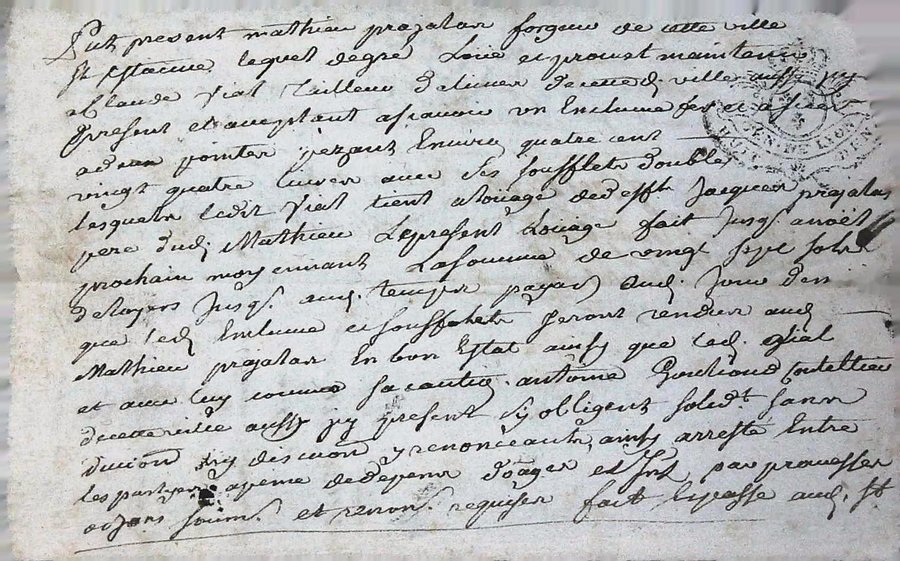 Fut present mathieu prajalas forgeur de cette ville
St Estienne lequel degré Loüe et promet maintenir
a Claude Vial Tailleur delimes decetted. ville aussy jcy
present et acceptant ascavoir un Enclume fer et acier
pointer pezant Environ quatre cent
vingt quatre livres avec ses soufflets doubles
lesquels ledit Vial tient a loüage dedefft. Jacques prajalas
pere dud. Mathieu Lepresent Loüage fait Jusqs. anoël
prochain moyennant Lasomme de vingt sept sols
deloyers Jusqs. aud. temps payas aud. Jour
que led. Enclume et soufflets seront rendues aud.
Mathieu prajalas En bon Estat ainsy que led. Vial
et avec luy comme sa caution antoine coutellier
decetteville aussy jcy present s'y obligent solidt. sans
division ny discuon. y renonceants, ainsy arresté Entre
les partyes apeine dedepens et par promesses
soums. et renons. requises fait Epasse aud. St
GEN. DE LYON
HUIT DEN